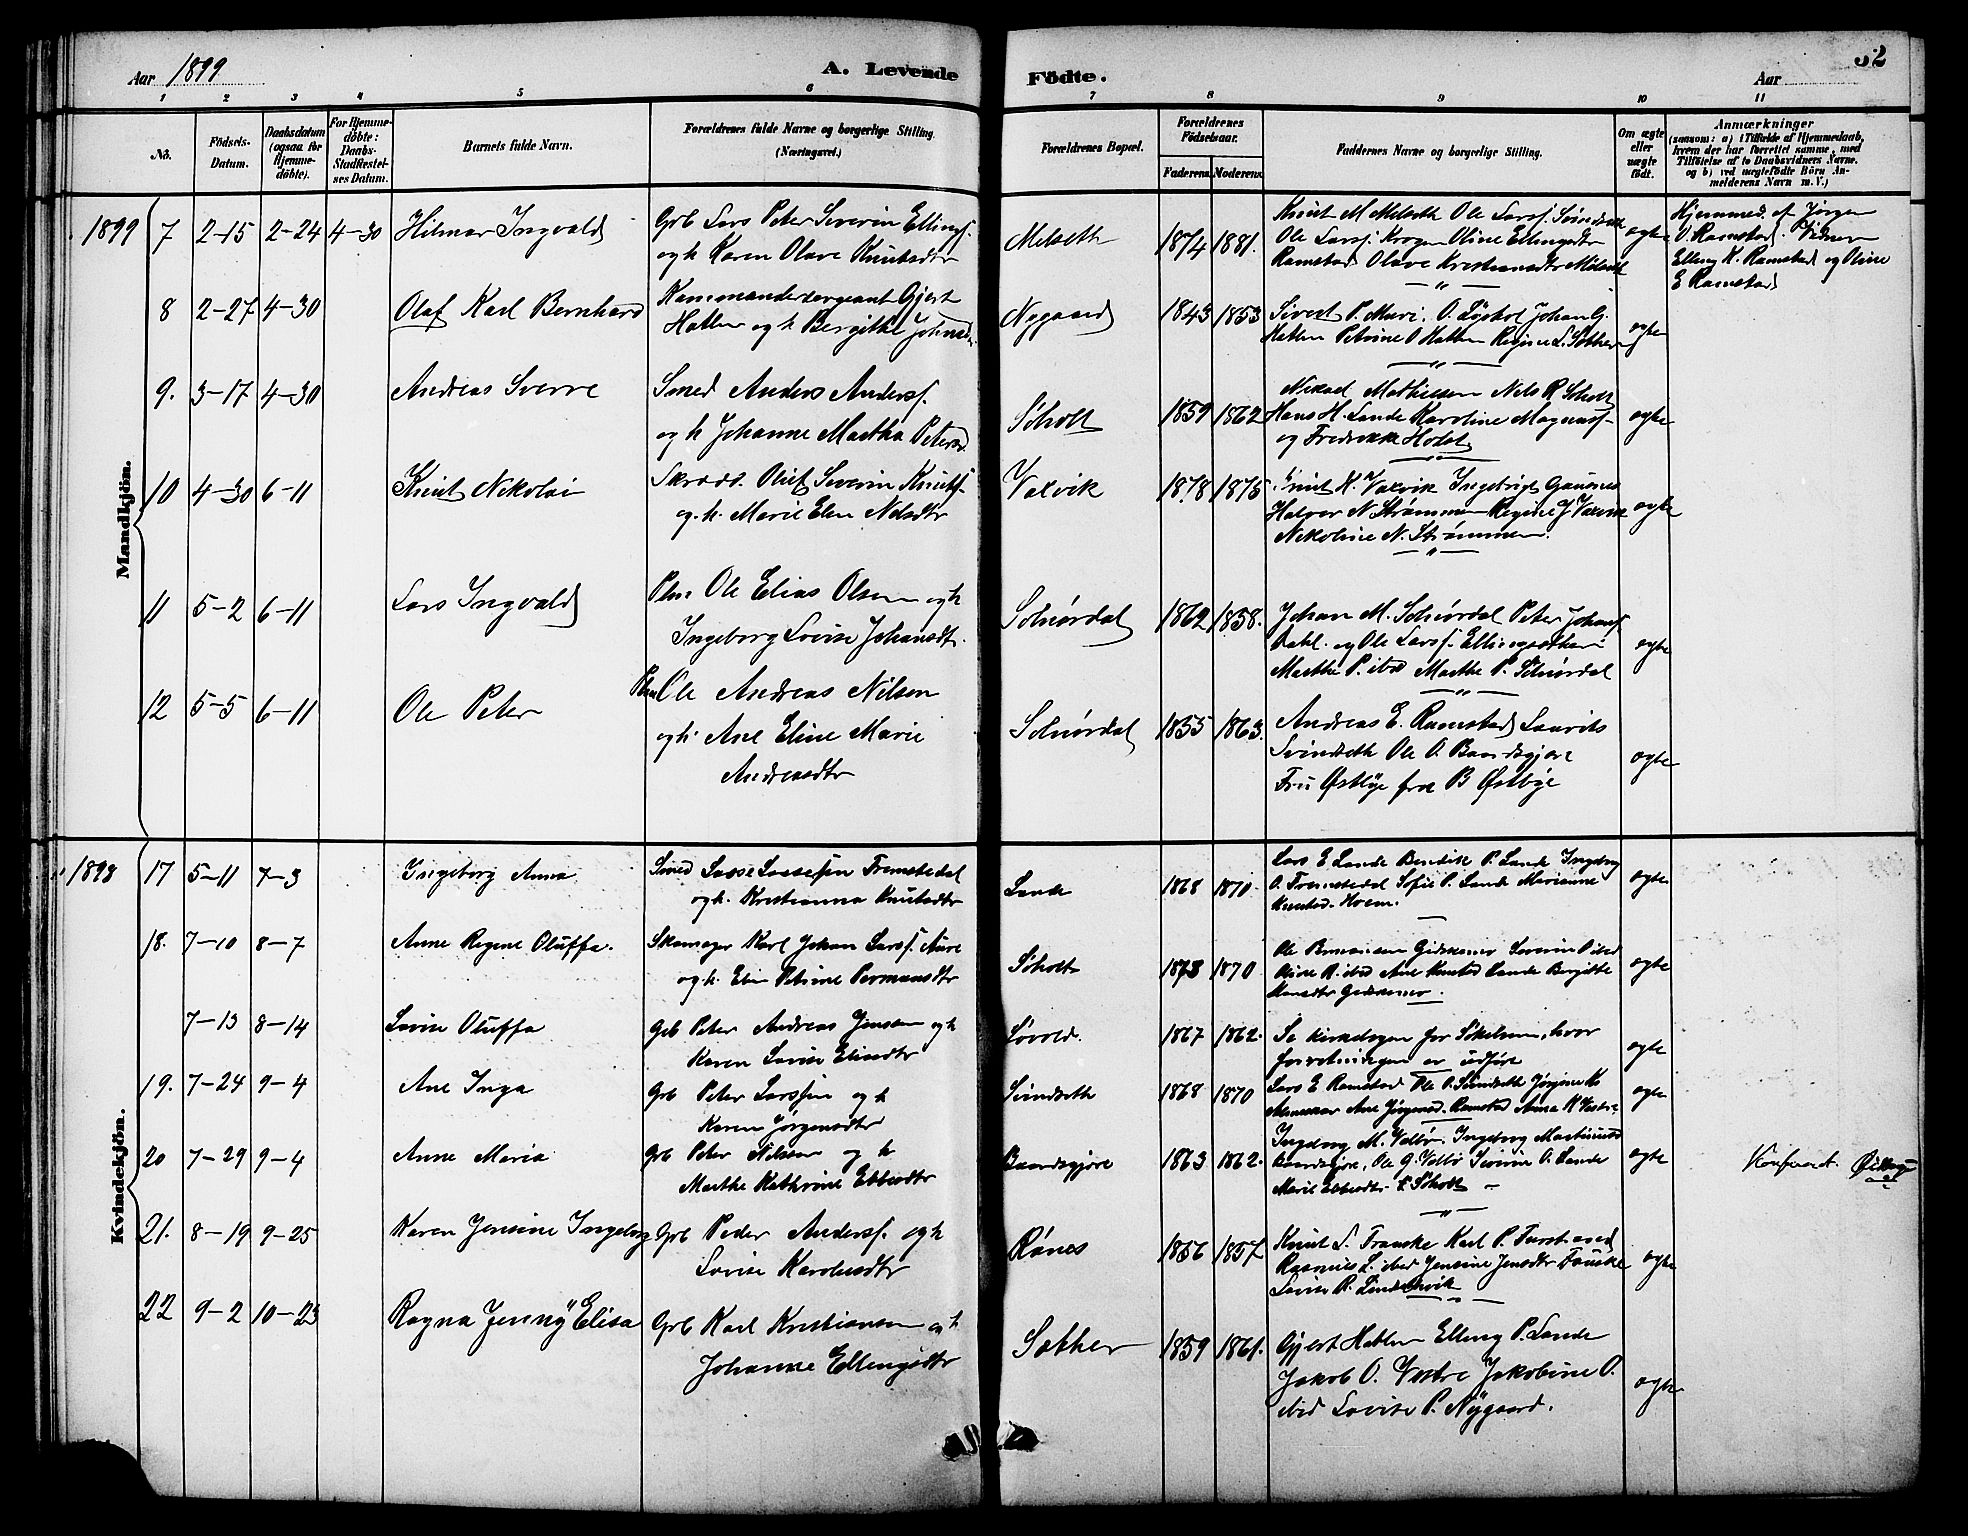 Aar 1899
A. Levende
Födte.
Aar
32
1 2 3 4 5 6 7 8 9 10 11
No.
Födsels-
Datum.
Daabsdatum
(ogsaa for
Hjemme-
döbte).
For Hjemme-
döbte:
Daabs-
Stadfæstel-
ses Datum.
Barnets fulde Navn.
Forældrenes fulde Navne og borgerlige Stilling.
(Næringsvei.)
Forældrenes Bopæl.
Forældrenes
Födselsaar.
Faderens. Moderens.
Faddernes Navne og borgerlige Stilling.
Om ægte
eller
uægte
födt.
Anmærkninger
(saasom: a) i Tilfælde af Hjemmedaab,
hvem der har forrettet samme, med
Tilföielse af to Daabsvidners Navne.
og b) ved uægtefödte Börn An-
melderens Navn m. V.)
Mandkjön.
1899 7 2-15 2-24 4-30 Hilmar Ingvald
Grb Lars Peter Severin Ellingsf.
og h Karen Olave Knutsdtr
Melseth 1874 1881.
Knut M Melseth Ole Larsf. Svindseth
Ole Larsf. Krogen Oline Ellingsdtr
Ramstad Olave Kristiansdtr Melseth
ægte
Hjemmed. af Jørgen
O. Ramstad. Vidner
Elling K. Ramstad og Oline
E Ramstad
8 2-27 4-30 Olaf Karl Bernhard
Kommandersergeant Gjert
Hatlen og h Bergithe Johnsd
Nygaard 1843 1853
Sivert P. Muri. O. Johan G.
Hatlen Petrine O Hatlen Regine L. Sæther
ægte
9. 3-17 4-30 Andreas Sverre
Smed Anders Andersf.
og h Johanne Martha Petersd
Søholt 1859 1862
Mathiesen Nils R Søholt
Hans H. Lande Karoline Magnusf
og Fredrikke Holst
ægte
10 4-30 6-11 Knut Nikolai
Skrædd. Oluf Severin Knutsf
og h. Marie Elen Nilsdtr
Vaxvik 1878 1875
Knut K. Vaxvik Ingebrigt
Halvor N Strømmen Regine J Vaxvik
Nikoline N. Strømmen.
ægte
11 5-2 6-11 Lars Ingvald
Plsm Ole Elias Olsen og h
Ingeborg Lovise Johansdtr.
Solnørdal 1862 1858.
Johan M. Solnørdal Peter Johansf
Dahl. og Ole Larsf. Ellingsæther
Marthe P. ibd Marthe P. Solnørdal
ægte
12 5-5 6-11 Ole Peter
Plsm Ole Andreas Nilsen
og h. Ane Eline Marie
Andreasdtr
Solnørdal 1855 1863.
Andreas E. Ramstad Laurits
Svindseth Ole O. Baandsgjære
Fru Østbye frøk B Østbye
ægte
Kvindekjön.
1898 17 5-11 7-3 Ingeborg Anna
Smed Lasse Lassesen Fremstedal
og h. Kristianna Knutsdtr
Lande 1868 1870
Lars E Lande Bendik P. Lande Ingeborg
O. Fremstedal Sofie P. Lande Marianne
Knutsd. Hoem.
ægte
18. 7-10 8-7 Anne Regine Oluffa.
Skomager Karl Johan Larsf. Aure
og h. Elen Petrine Permansdtr
Søholt 1873 1870
Ole Permansen Severin P ibd
Oline R. ibd Ane Knutsd Lande Bergitte
Hansdtr
ægte
7-13 8-14 Lovise Oluffa
Grb Peter Andreas Jensen og h
Karen Lovise Eliasdtr
Søvold. 1867 1862.
Se kirkebogen for Stkelsum, hvor
forretningen er udført
ægte
19. 7-24 9-4 Ane Inga
Grb Peter Larssen og h
Karen Jørgensdtr
Svindseth 1868 1870
Lars E Ramstad Ole O. Svindseth Jørgine Ks
Ane Jørgensd. Ramstad Anna K Vestre
ægte
20 7-29 9-4 Anne Maria
Grb Peter Nilsen og h
Marthe Kathrine Ebbesdtr
Baandsgjære 1863 1862.
Ingeborg M. Velbø. Ingeborg Martinusd
Baandsgjære, Ole G. Velbø Severin O. Lande
Marie Ebbesdtr. Søholt
ægte
21. 8-19 9-25 Karen Jensine Ingeborg
Grb Peder Andersf. og h
Lovise Karolusdtr
Rønes 1856 1857
Knut L. Fauske Karl P. Furstrand
Rasmus L. ibd Jensine Jensdtr Fauske
Lovise R.
ægte
22 9-2 10-23 Ragna Jenny Elisa
Grb Karl Kristiansen og h
Johanne Ellingsdtr
Sæther 1859 1861.
Gjert Hatlen Elling P. Lande
Jakob O. Vestre Jakobine O.
ibid Lovise P. Nygaard.
ægte